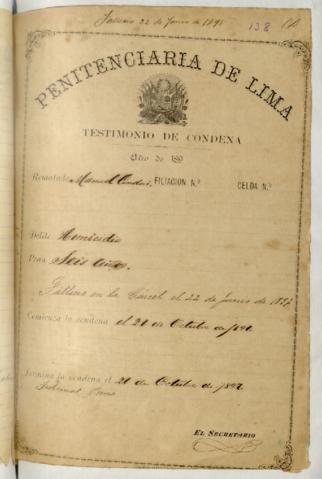 Falleció 22 de Junio de 1895
138
PENITENCIARIA DE LIMA
TESTIMONIO DE CONDENA
Año de 189
Rematado Manuel FILIACION N.º CELDA N.º
Delito Homicidio
Pena Seis años.
Falleció en la Cárcel el 22 de Junio de
Comienza la condena el 21 de Octubre de 1891.
Termina la condena el 21 de Octubre de 1897
Tribunal
EL SECRETARIO